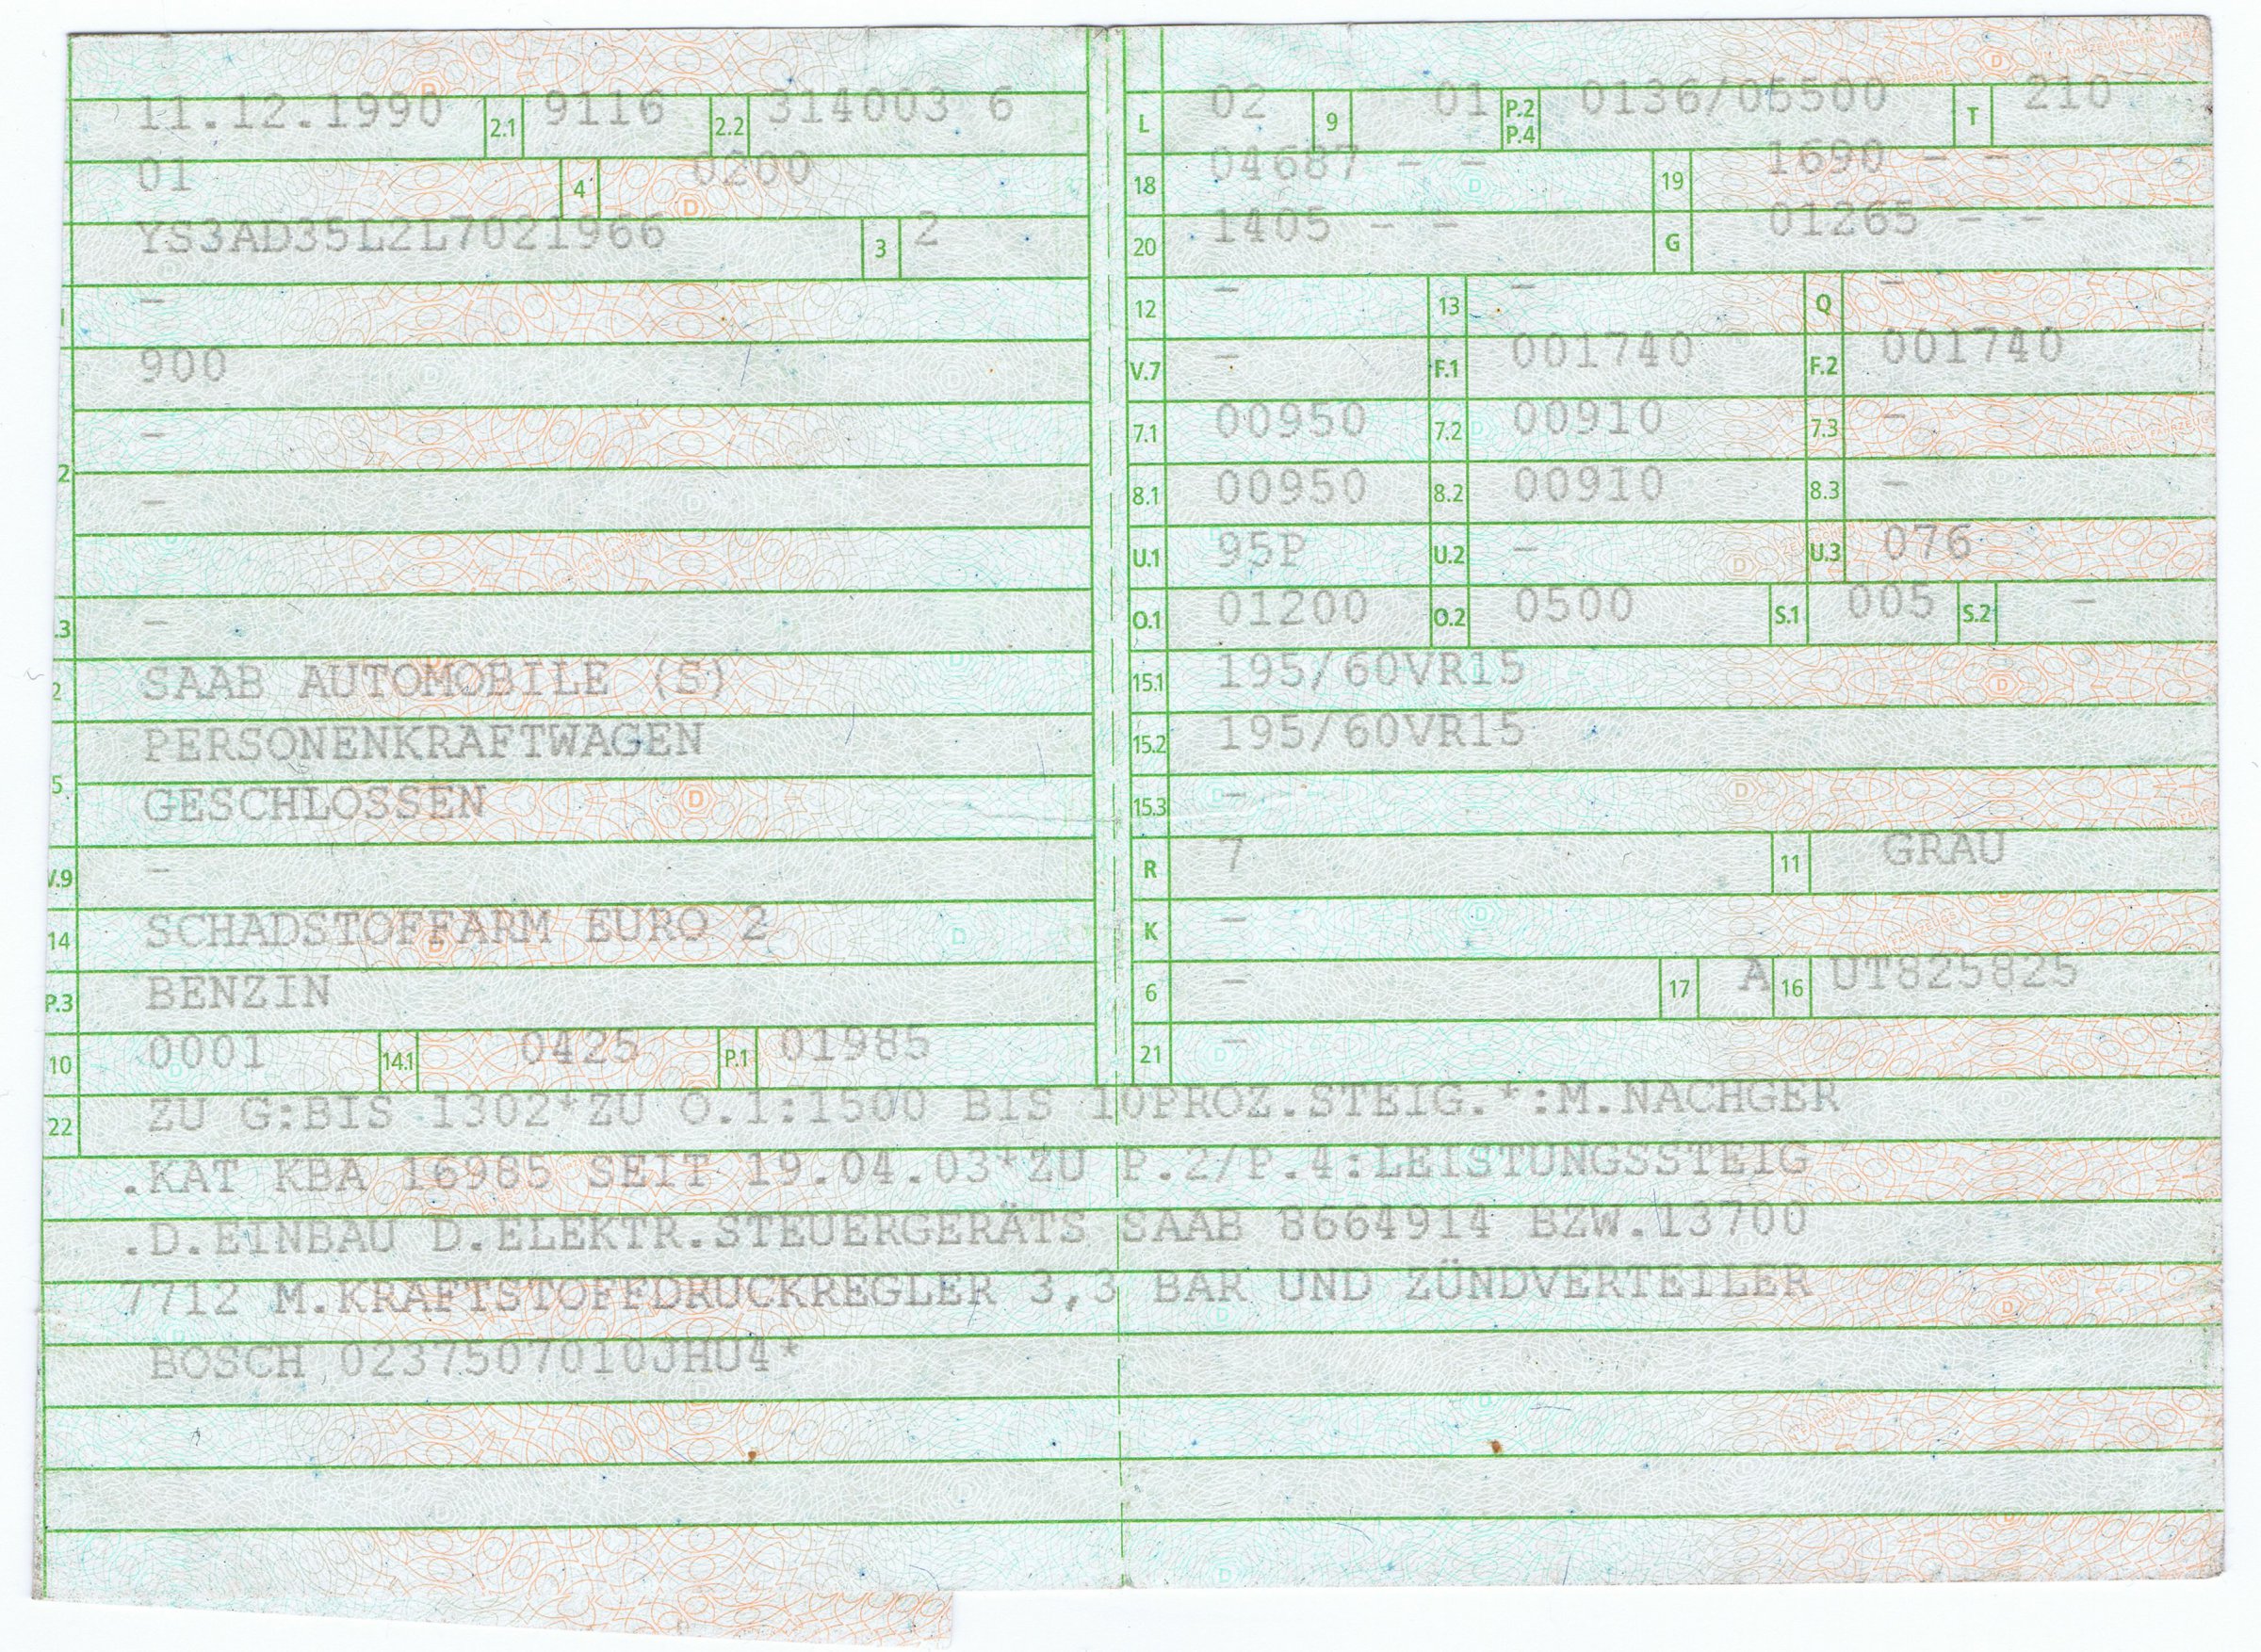 11.12.1990 2.1 9116 2.2 314003 6
01 4 0200
YS3AD35L2L7021966 3 2
-
900
-
2 -
.3 -
2 SAAB AUTOMOBILE (S)
PERSONENKRAFTWAGEN
5 GESCHLOSSEN
V.9 -
14 SCHADSTOFFARM EURO 2
P.3 BENZIN
10 0001 14.1 0425 P.1 01985
L 02 9 01 P.2 P.4 0136/05500 T 210
18 04687 - - 19 1690 - -
20 1405 - - G 01265 - -
12 - 13 - Q -
V.7 - F.1 001740 F.2 001740
7.1 00950 7.2 00910 7.3 -
8.1 00950 8.2 00910 8.3 -
U.1 95P U.2 - U.3 076
O.1 01200 O.2 0500 S.1 005 S.2 -
15.1 195/60VR15
15.2 195/60VR15
15.3 -
R 7 11 GRAU
K -
6 - 17 A 16 UT825825
21 -
22 ZU G:BIS 1302*ZU O.1:1500 BIS 10PROZ.STEIG.*:M.NACHGER
.KAT KBA 16985 SEIT 19.04.03*ZU P.2/P.4:LEISTUNGSSTEIG
.D.EINBAU D.ELEKTR.STEUERGERÄTS SAAB 8664914 BZW.13700
7712 M.KRAFTSTOFFDRUCKREGLER 3,3 BAR UND ZÜNDVERTEILER
BOSCH 0237507010JHU4*